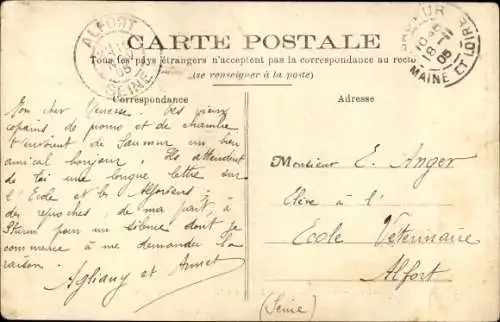 ALFORT
SEINE
CARTE POSTALE
SAUMUR
10
18-11
05
MAINE ET LOIRE
Tous les pays étrangers n'acceptent pas la correspondance au recto
(se renseigner à la poste)
Correspondance
Adresse
Mon cher
copains de promo et de chambre
t'envoient de Saumur un bien
amical bonjour. Ils attendent
de toi une longue lettre sur
l'Ecole et les Alforiens
des reproches, de ma part, à
Sturm pour un silence dont je
commence à me demander la
raison.
Agliany et
Monsieur E. Anger
Elève à l'
Ecole Vétérinaire
Alfort
(Seine)